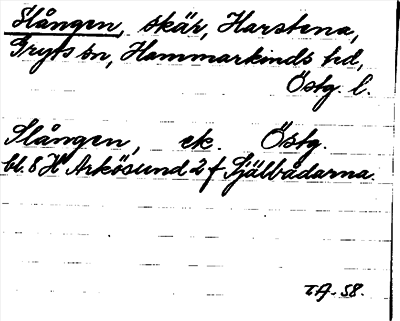 Slången, skär, Harstena,
Gryts sn, Hammarkinds hd,
Östg. l.
Slången, ek. Östg.
bl. 8 H Arkösund 2 f Själbådarna.
T.A. 58.